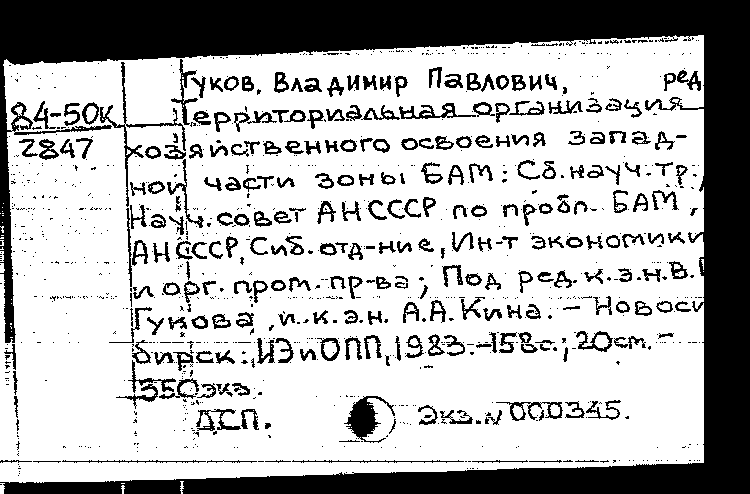 Гуков, Владимир Павлович, ред.
84-50к Территориальная организация
2847 хозяйственного освоения запад-
ной части зоны БАМ: Сб.науч.тр.,
Науч.совет АН СССР по пробл. БАМ,
АН СССР, Сиб.отд-ние, Ин-т экономики
и орг. пром. пр-ва; Под ред. к.э.н. В.
Гукова, и к.э.н. А.А. Кина. – Новоси
бирск: ИЭиОПП, 1983.-158с.; 20см.-
350экз.
ДСП. Экз.№000345.